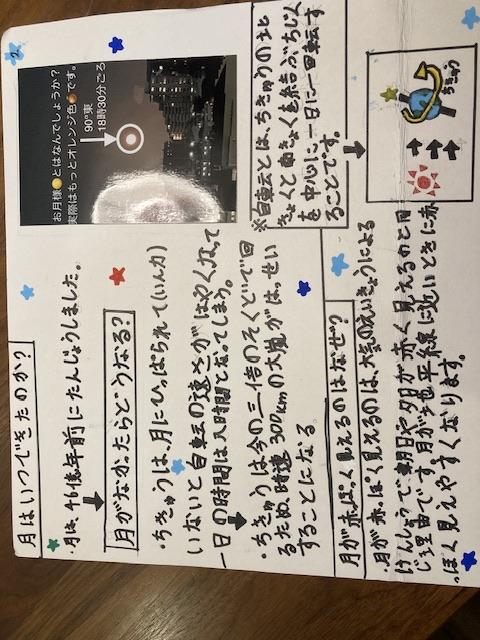 2.
月はいつできたのか?
・月は、46億年前にたんじょうしました。
月がなかったらどうなる?
・ちきゅうは、月にひっぱられて(いん力)
いないと自転の速さがはやくなって
一日の時間は八時間となってしまう。
・ちきゅうは今の三倍のそくどで回
るため、時速300kmの大嵐がはっせい
することになる
お月様🌕とはなんでしょうか?
実際はもっとオレンジ色🟠です。
90°東
18時30分ごろ
※自転とは、ちきゅうの北
きょくと南きょくを結ぶちじく
を中心に一日に一回転す
ることです。
ちきゅう
月が赤っぽく見えるのはなぜ?
・月が赤っぽく見えるのは、大気のえいきょうによる
げんしょうで、朝日や夕日が赤く見えるのと同
じ理由です。月が地平線に近いときに赤
っぽく見えやすくなります。